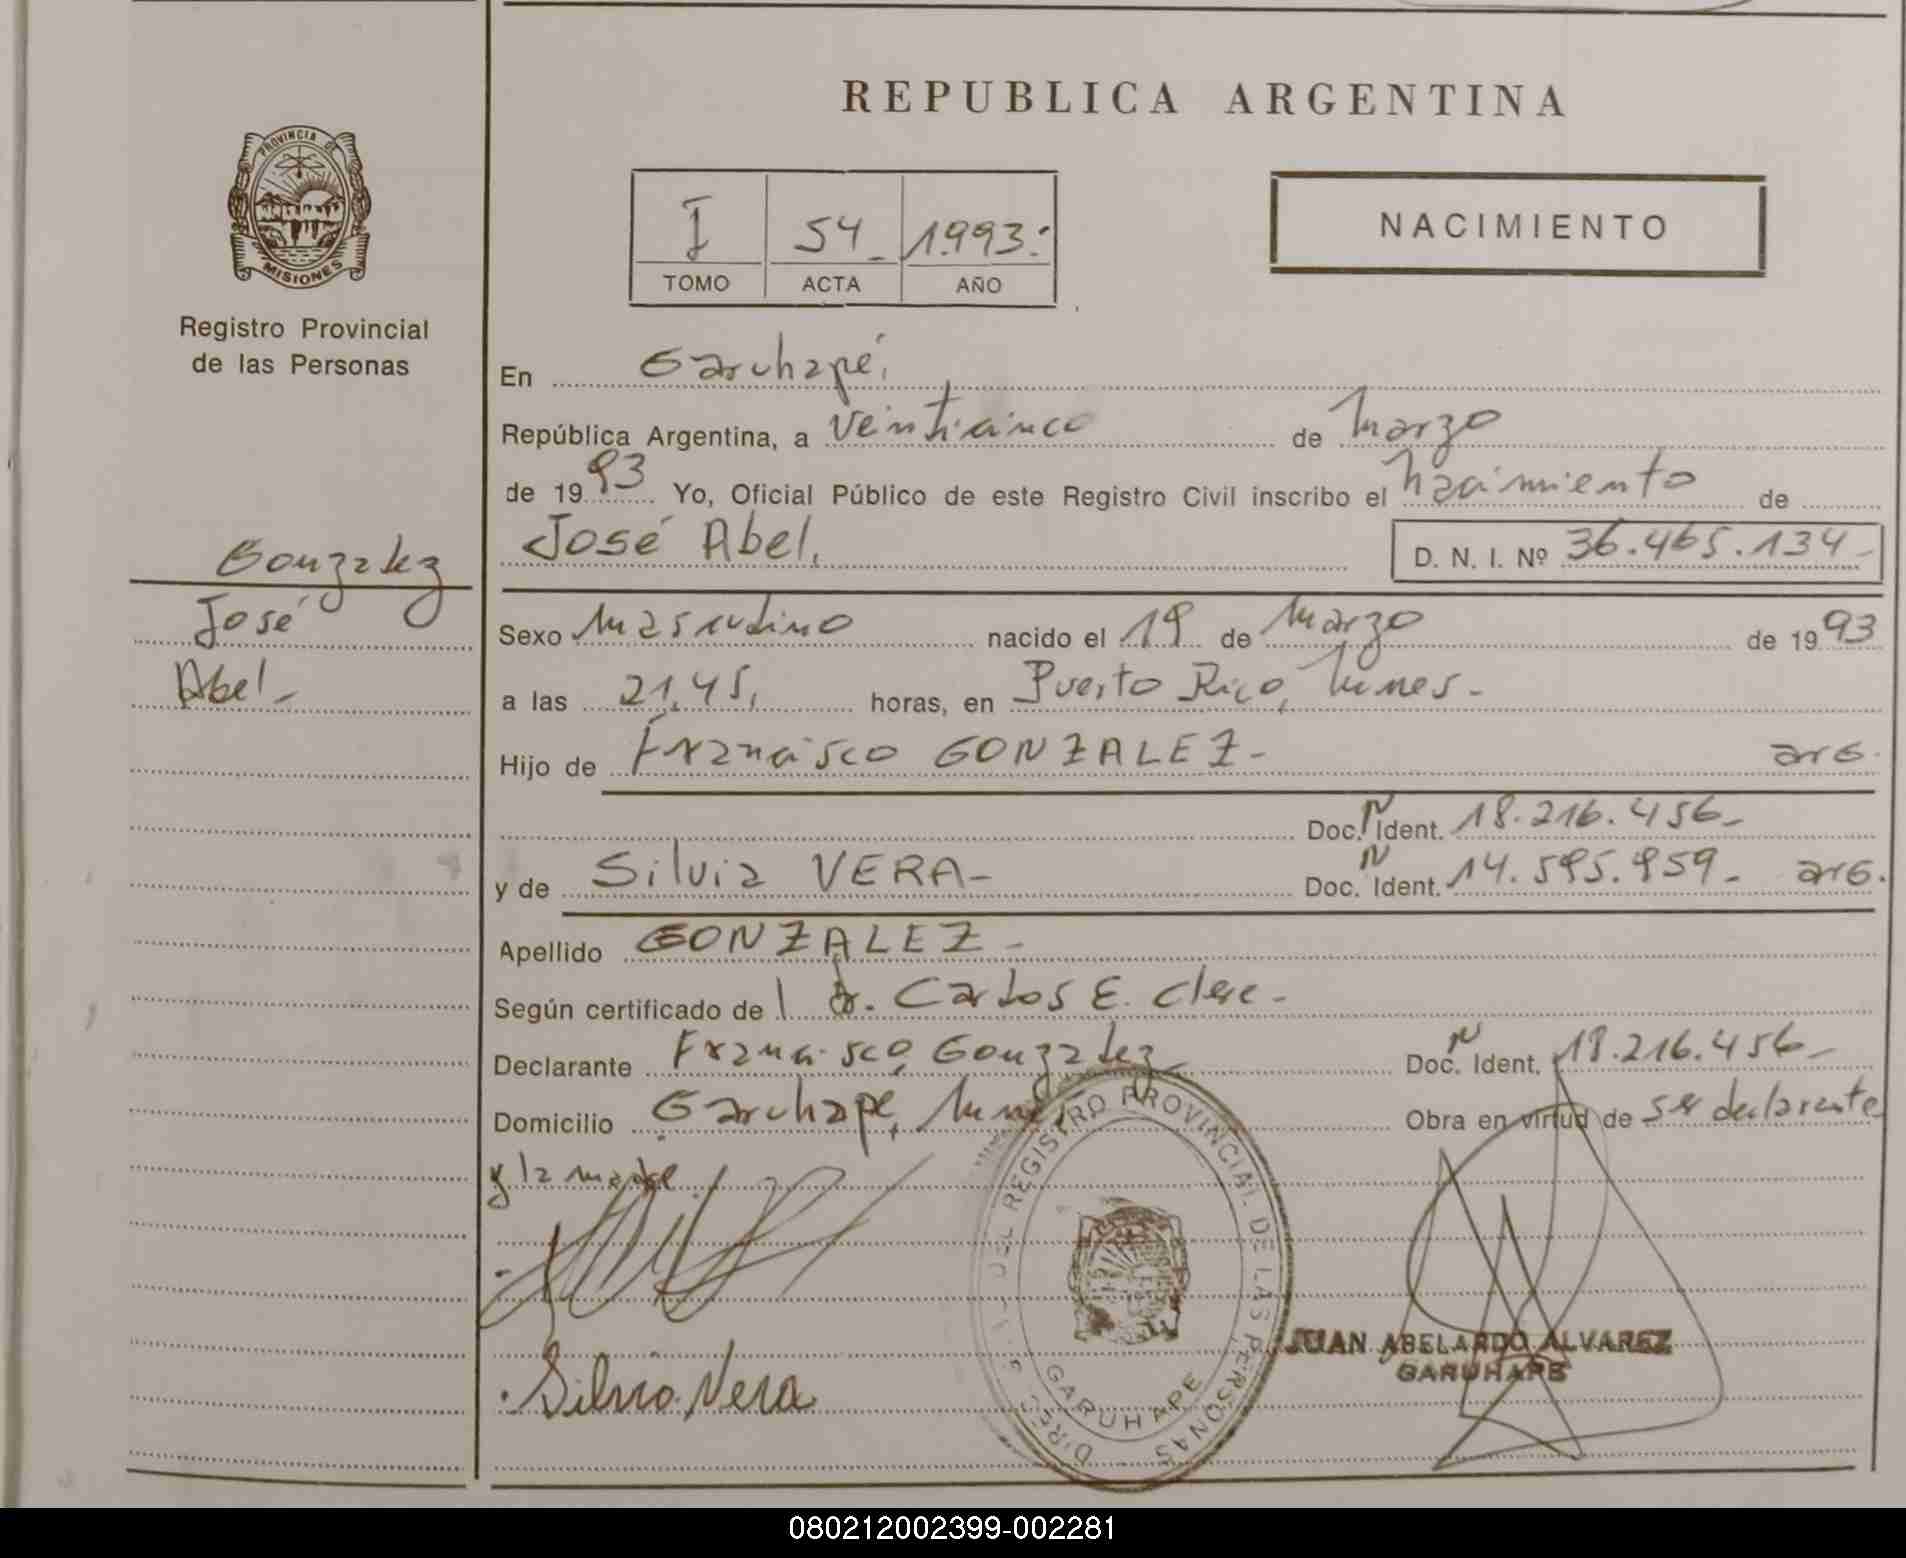 REPUBLICA ARGENTINA
PROVINCIA DE
MISIONES
Registro Provincial
de las Personas
I 54_ 1.993.-
TOMO ACTA AÑO
NACIMIENTO
En Garuhapé,
República Argentina, a veinticinco de Marzo
de 1993 Yo, Oficial Público de este Registro Civil inscribo el nacimiento de
José Abel.
D. N. I. Nº 36.465.134_
Gonzalez
José
Abel_
Sexo Masculino nacido el 19 de Marzo de 1993
a las 21,45, horas, en Puerto Rico, Mnes.-
Hijo de Francisco GONZALEZ- arG.
Doc. N Ident. 18.216.456_
y de Silvia VERA- Doc. N Ident. 14.595.959_ arG.
Apellido GONZALEZ-
Según certificado de l dr. Carlos E. Clerc-
Declarante Francisco, Gonzalez_ Doc. N Ident. 18.216.456_
Domicilio Garuhape, Mnes, Obra en virtud de ser declarante
y la madre.
DEL REGISTRO PROVINCIAL DE LAS PERSONAS
GARUHAPE
JUAN ABELARDO ALVAREZ
GARUHAPE
Silvia Vera
080212002399-002281